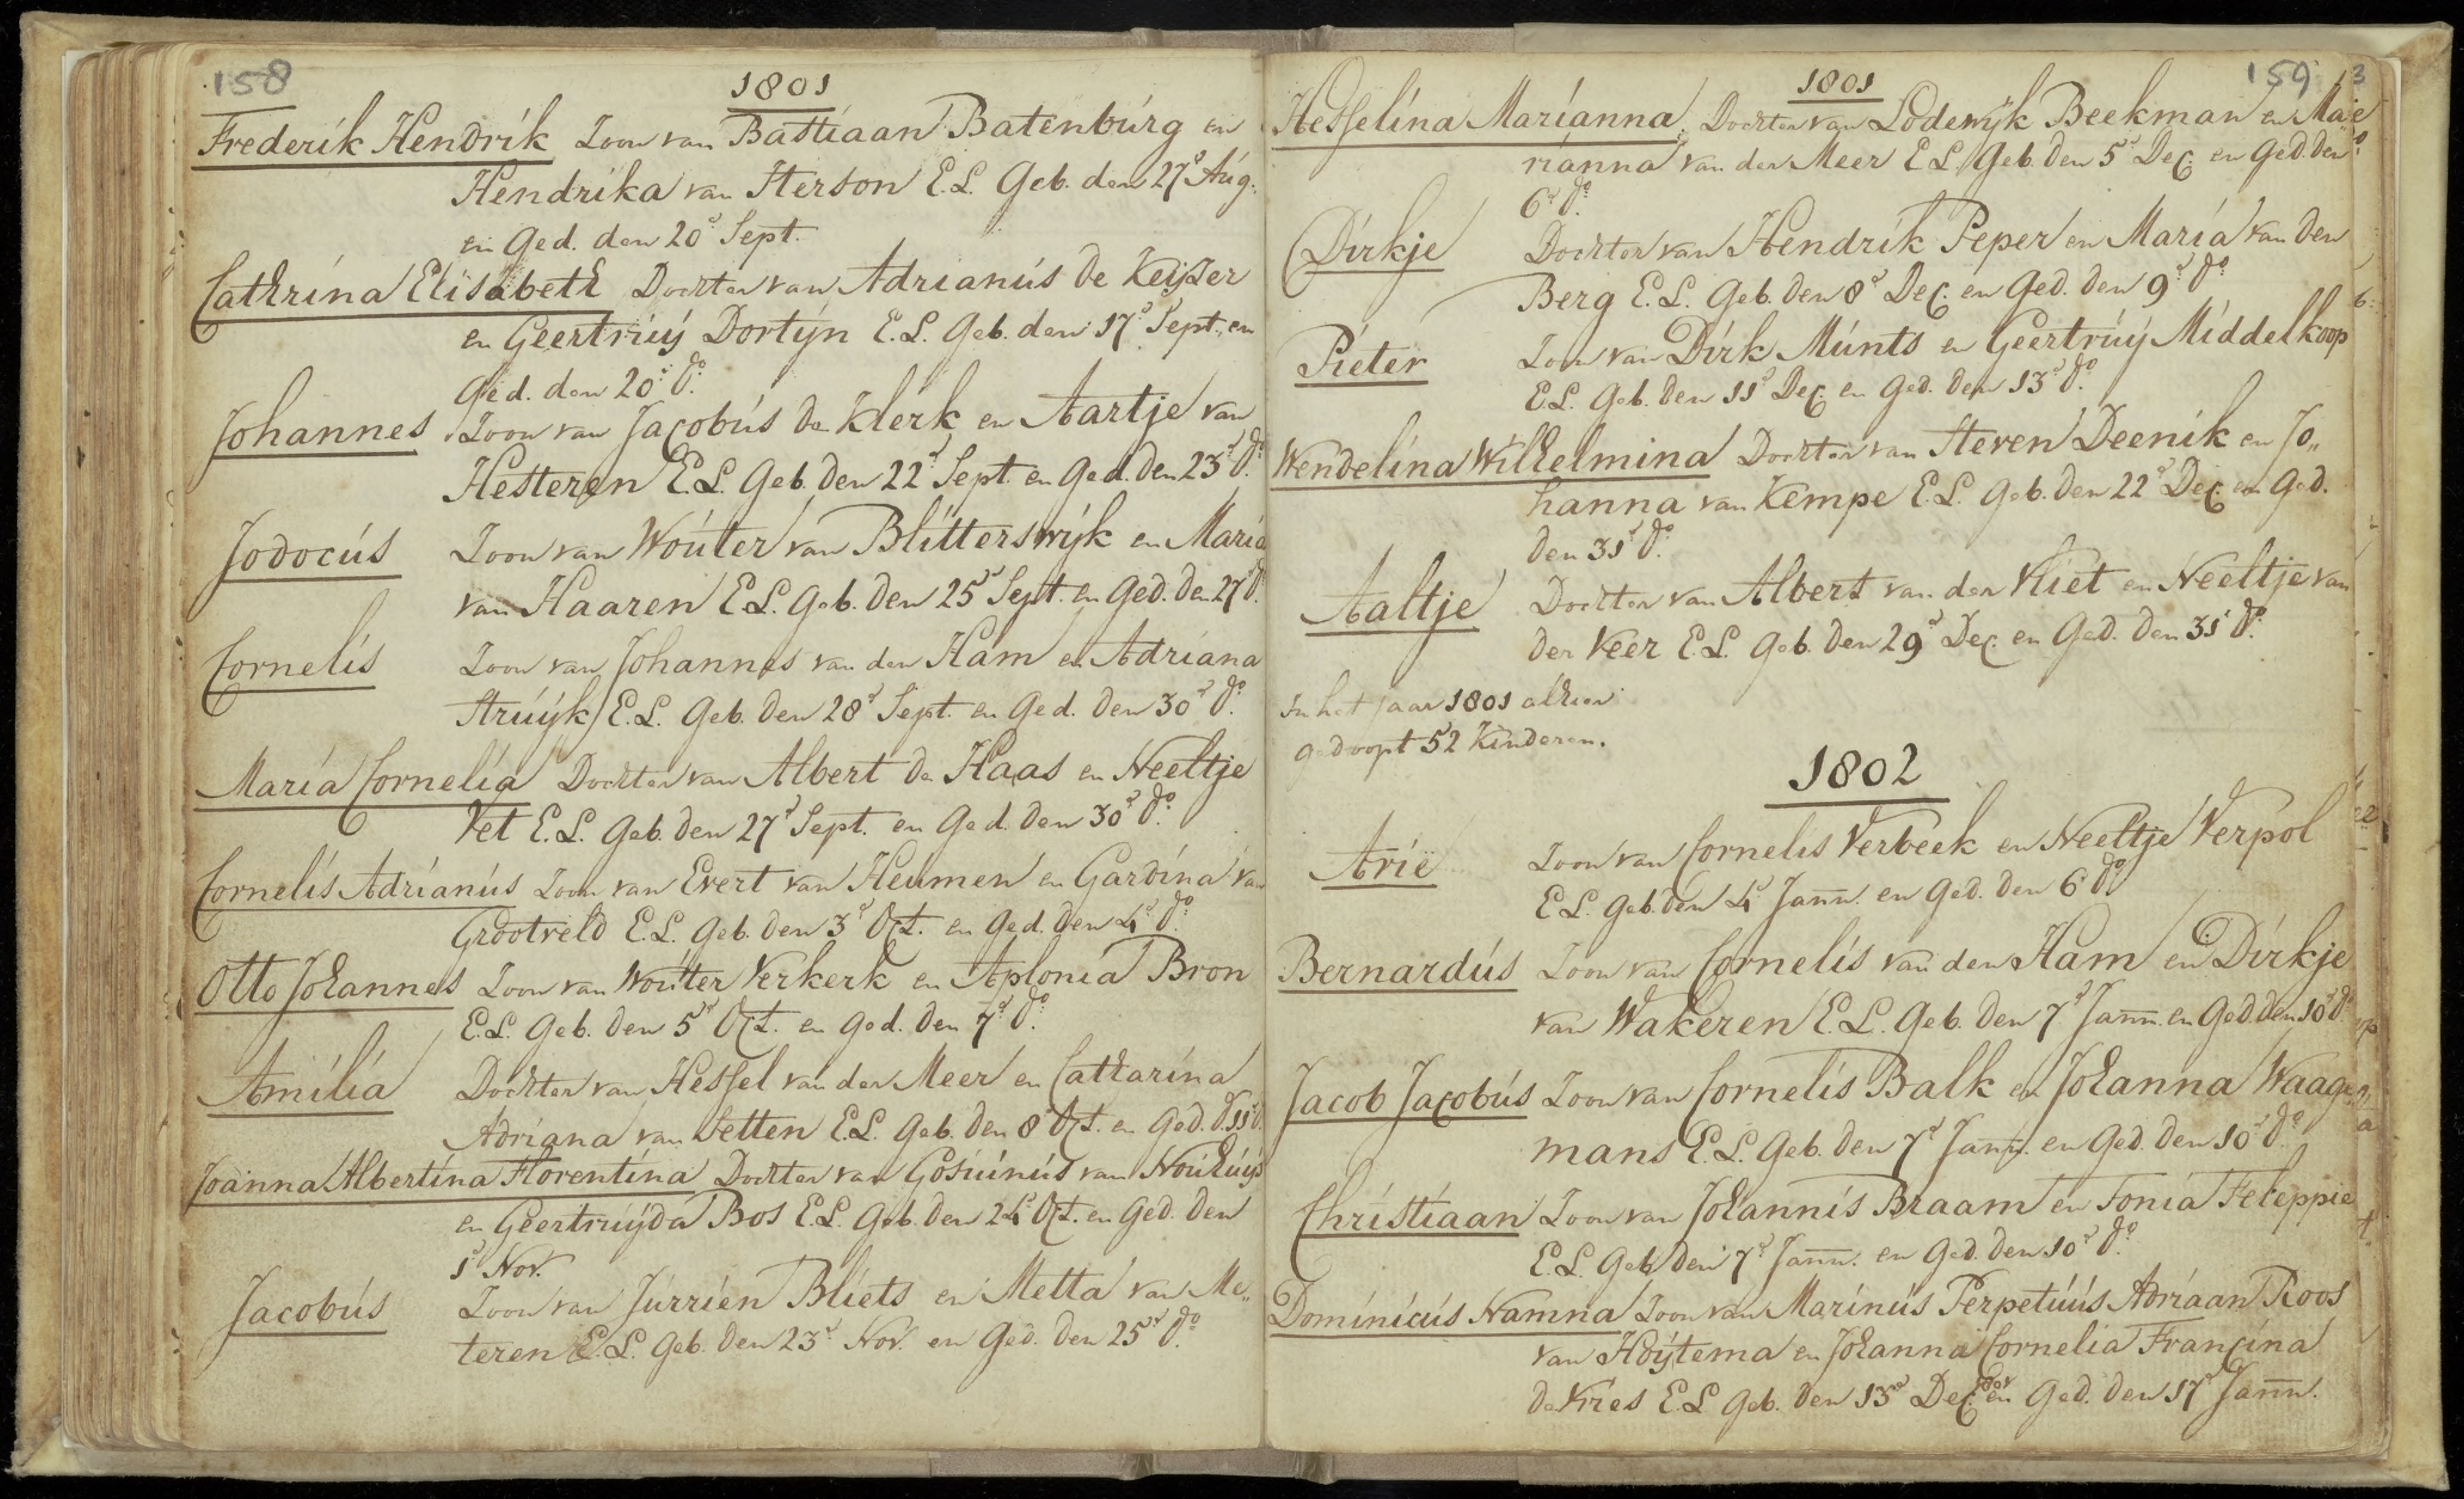 158
1801
Frederik Hendrik Zoon van Bastiaan Batenburg en
Hendrika van Sterson E.L. Geb. den 27e Aug.
en Ged. den 20e Sept.
Cathrina Elisabeth Dochter van Adrianus de Keijzer
en Geertruij Dortijn E.L. Geb. den 17e Sept. en
Ged. den 20e do.
Johannes Zoon van Jacobus de Klerk en Aartje van
Hesteren E.L. Geb. den 22e Sept. en Ged. den 23e do.
Jodocus Zoon van Wouter van Blitterswijk en Maria
van Haaren E.L. Geb. den 25e Sept. en Ged. den 27 do.
Cornelis Zoon van Johannes van den Ham en Adriana
Struijk E.L. Geb. den 28e Sept. en Ged. den 30e do.
Maria Cornelia Dochter van Albert de Haas en Neeltje
Vet E.L. Geb. den 27e Sept. en Ged. den 30e do.
Cornelis Adrianus Zoon van Evert van Heumen en Gardina van
Grootveld E.L. Geb. den 3e Oct. en Ged. den 4e do.
Otto Johannes Zoon van Wouter Verkerk en Aplonia Bron
E.L. Geb. den 5e Oct. en Ged. den 7e do.
Amilia Dochter van Hessel van der Meer en Catharina
Adriana van Setten E.L. Geb. den 8e Oct. en Ged. d. 11e do.
Joanna Albertina Florentina Dochter van Gosuinus van Nouhuijs
en Geertruijda Bos E.L. Geb. den 24e Oct. en Ged. den
1e Nov.
Jacobus Zoon van Jurrien Bliets en Metta van Me„
teren E.L. Geb. den 23e Nov. en Ged. den 25e do.
159
1801
Hesselina Marianna Dochter van Lodewijk Beekman en Ma„
rianna van der Meer E.L. Geb. den 5e Dec. en Ged. den
6e do.
Dirkje Dochter van Hendrik Peper en Maria van den
Berg E.L. Geb. den 8e Dec. en Ged. den 9e do.
Pieter Zoon van Dirk Munts en Geertruij Middelkoop
E.L. Geb. den 11e Dec. en Ged. den 13e do.
Wendelina Wilhelmina Dochter van Steven Deenik en Jo„
hanna van Kempe E.L. Geb. den 22e Dec. en Ged.
den 31e do.
Aaltje Dochter van Albert van der Vliet en Neeltje van
der Veer E.L. Geb. den 29e Dec. en Ged. den 31e do.
In het jaar 1801 alhier
gedoopt 52 Kinderen.
1802
Arie Zoon van Cornelis Verbeek en Neeltje Verpol
E.L. Geb. den 4e Jann. en Ged. den 6 do.
Bernardus Zoon van Cornelis van den Ham en Dirkje
van Wakeren E.L. Geb. den 7e Jann. en Ged. den 10e do.
Jacob Jacobus Zoon van Cornelis Balk en Johanna Waage„
mans E.L. Geb. den 7e Jann. en Ged. den 10e do.
Christiaan Zoon van Johannis Braam en Tonia Feleppie
E.L. Geb. den 7e Jann. en Ged. den 10e do.
Dominicus Namna Zoon van Marinus Perpetuus Adriaan Roos
van Hoijtema en Johanna Cornelia Francina
de Vries E.L. Geb. den 13e Dec. en Ged. den 17e Jann.